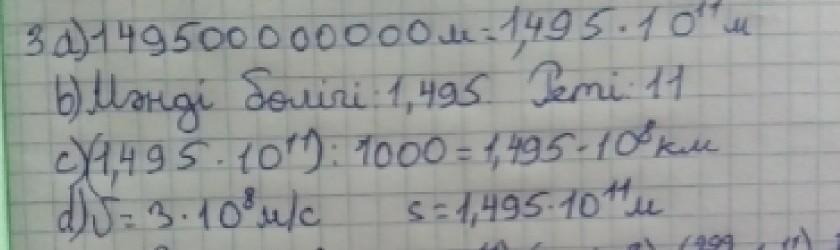 3 a) 149500000000 м = 1,495 · 10¹¹ м
b) Мәнді бөлігі: 1,495. Реті: 11
c) (1,495 · 10¹¹) : 1000 = 1,495 · 10⁸ км
d) υ = 3 · 10⁸ м/с s = 1,495 · 10¹¹ м